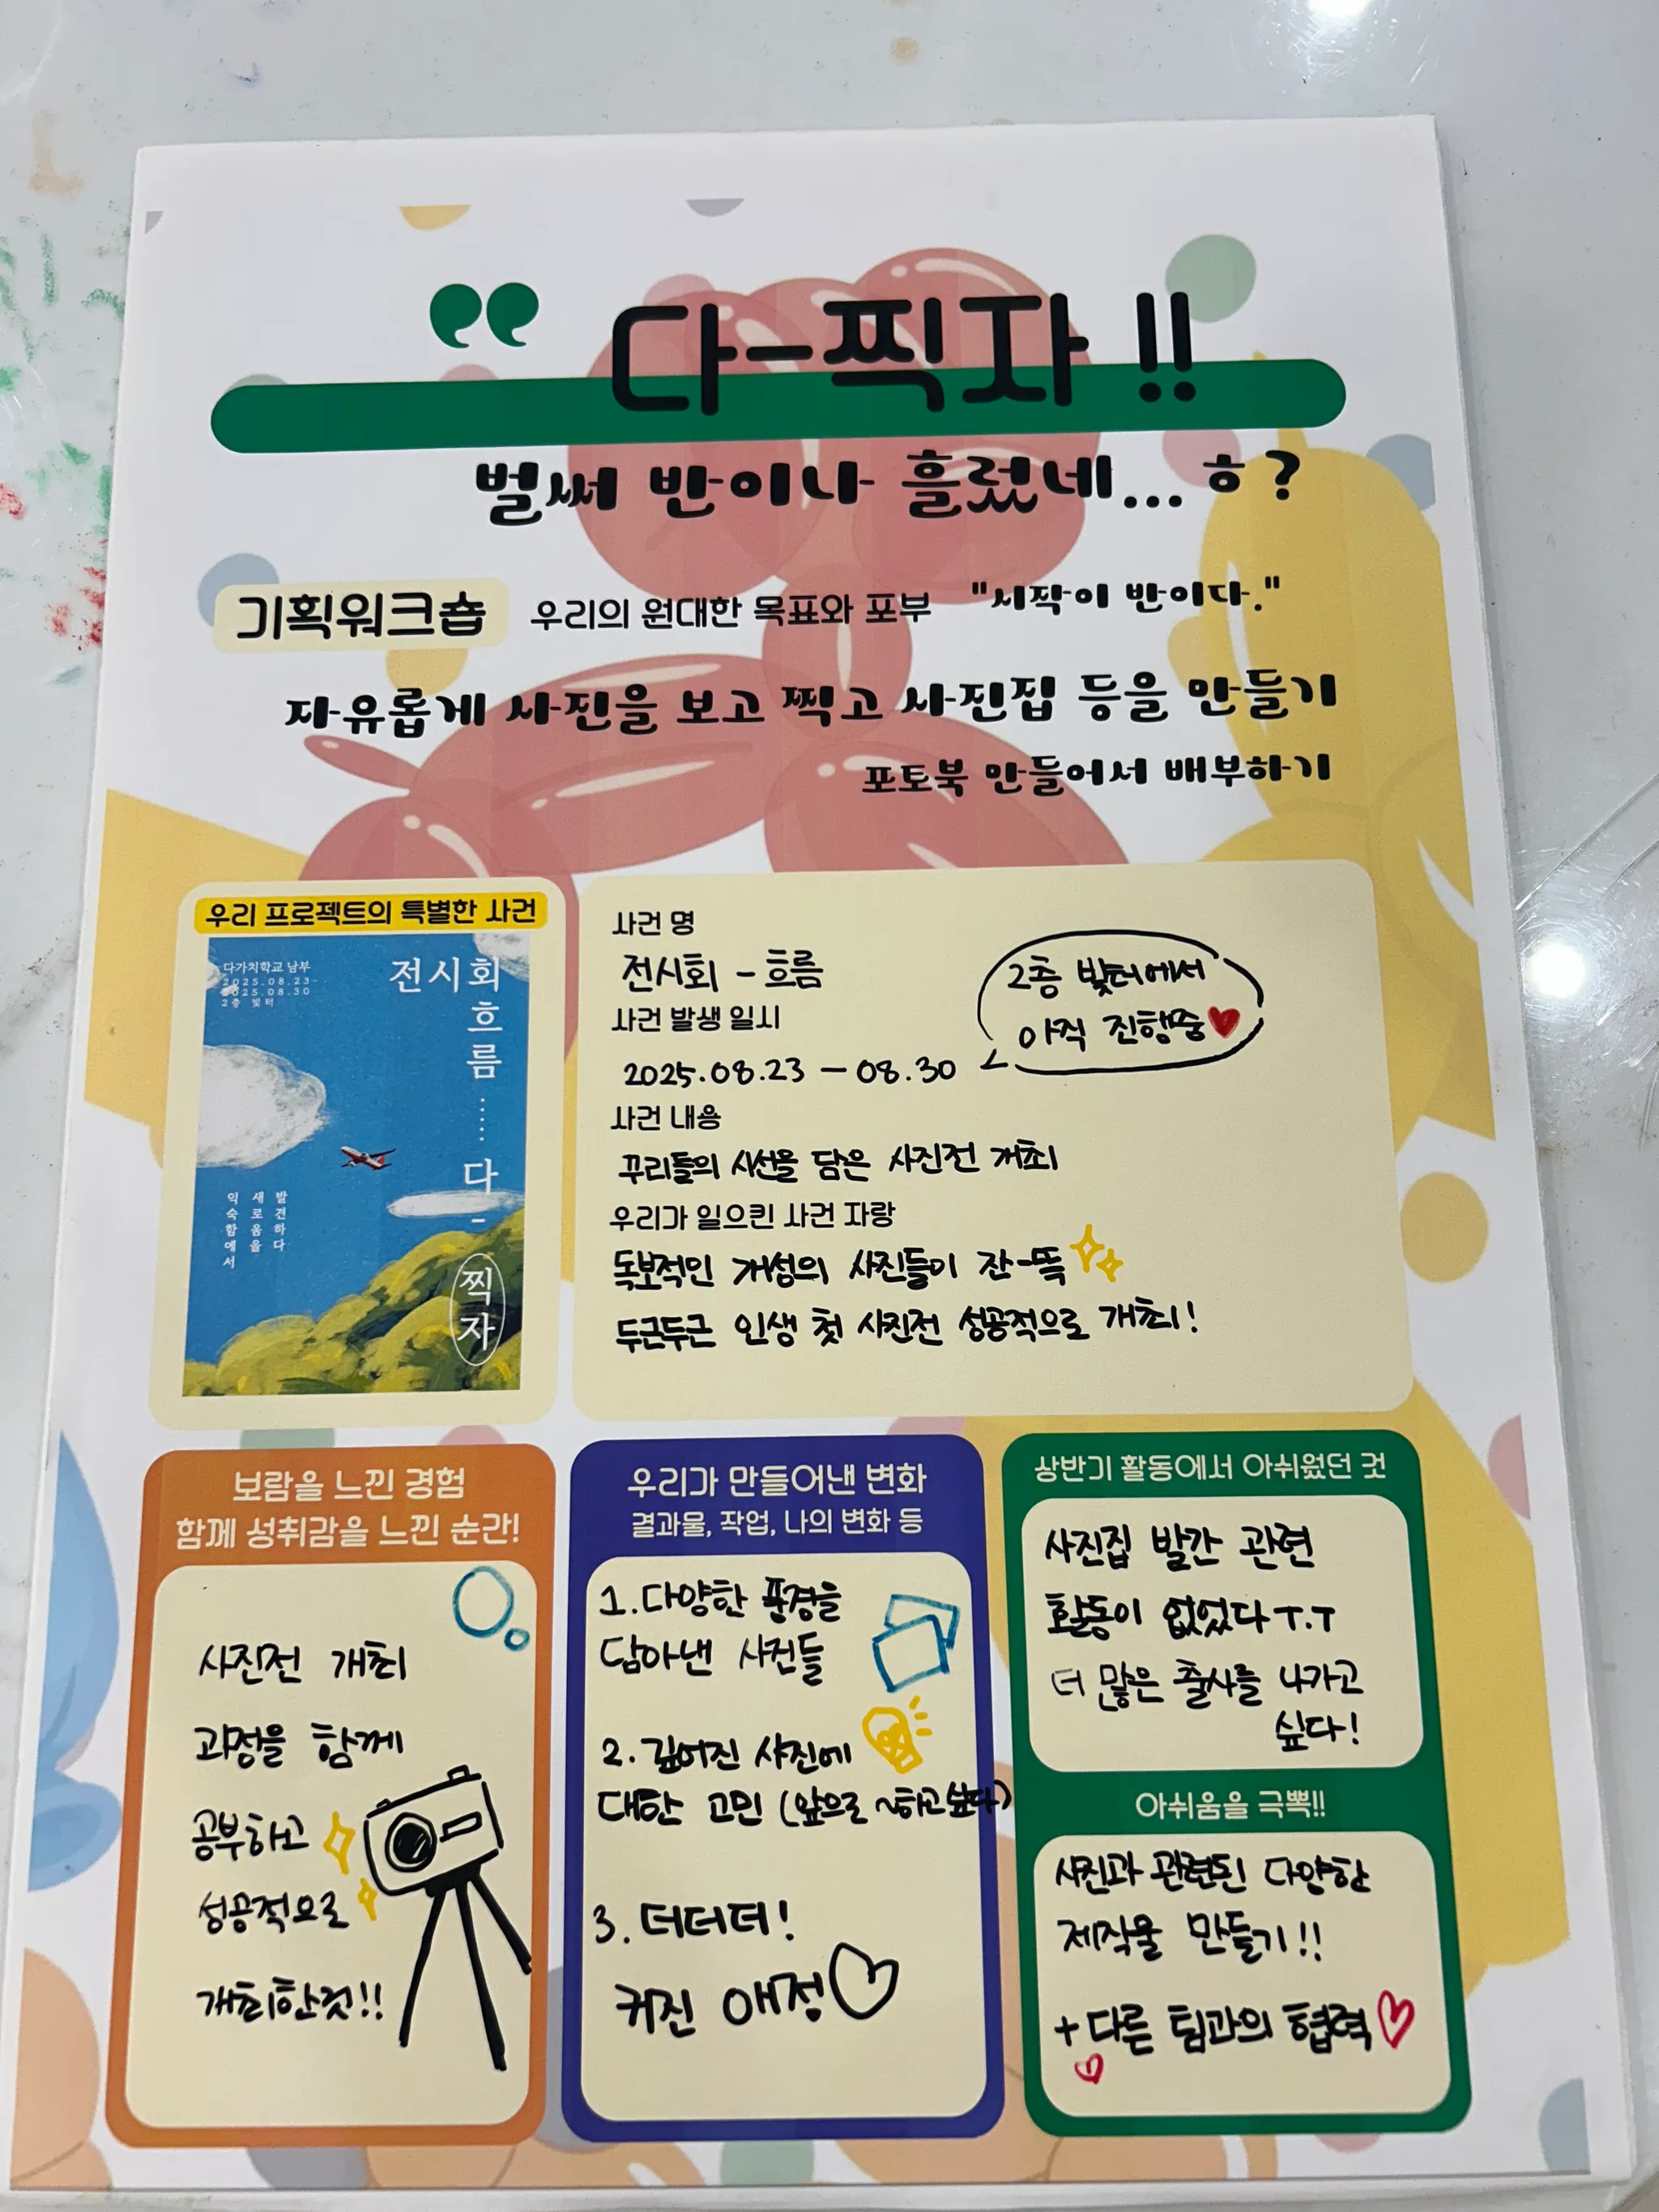 다-찍자!!
벌써 반이나 흘렀네...ㅎ?
기획워크숍 우리의 원대한 목표와 포부 "시작이 반이다."
자유롭게 사진을 보고 찍고 사진집 등을 만들기
포토북 만들어서 배부하기
우리 프로젝트의 특별한 사건
다가치학교 남부
2025.08.23-
2025.08.30
2층 빛터
전시회
흐름......다-찍자
익숙함에서
새로움을
발견하다
사건 명
전시회 - 흐름
2층 빛터에서
아직 진행중
사건 발생 일시
2025.08.23 - 08.30
사건 내용
꾸리들의 시선을 담은 사진전 개최
우리가 일으킨 사건 자랑
독보적인 개성의 사진들이 잔-뜩
두근두근 인생 첫 사진전 성공적으로 개최!
보람을 느낀 경험
함께 성취감을 느낀 순간!
사진전 개최
과정을 함께
공부하고
성공적으로
개최한것!!
우리가 만들어낸 변화
결과물, 작업, 나의 변화 등
1. 다양한 풍경을
담아낸 사진들
2. 깊어진 사진에
대한 고민 (앞으로 ~하고싶다)
3. 더더더!
커진 애정
상반기 활동에서 아쉬웠던 것
사진집 발간 관련
활동이 없었다ㅜ.ㅜ
더 많은 출사를 나가고
싶다!
아쉬움을 극뽁!!
사진과 관련된 다양한
제작물 만들기!!
+ 다른 팀과의 협력